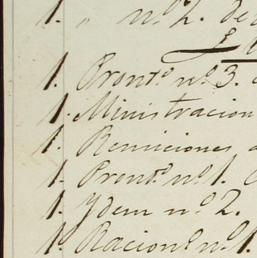 1. " nº 2. de
1. Prontº nº 3.
1. Ministracion
1. Remiciones
1. Prontº nº 1.
1. Ydem nº 2.
1. Racionº nº 1.